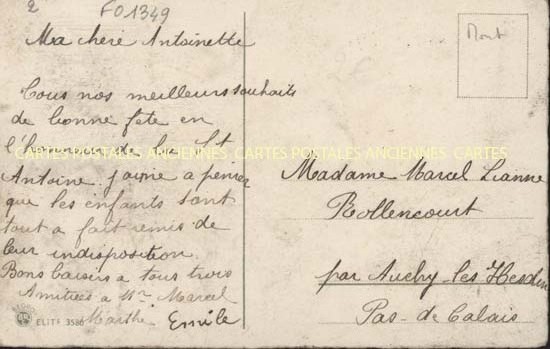 2
FO1349
Ma chere Antoinette
Tous nos meilleurs souhaits
de bonne fete en
l'honneur de la St
Antoine j'aime a penser
que les enfants sont
tout a fait remis de
leur indisposition.
Bons baisers a tous trois
Amities a Mr Marcel
Marthe. Emile
ELITE 3586
CARTES POSTALES ANCIENNES CARTES POSTALES ANCIENNES CARTES
Madame Marcel Lianne
Rollencourt
par Auchy-les-Hesdin
Pas-de-Calais